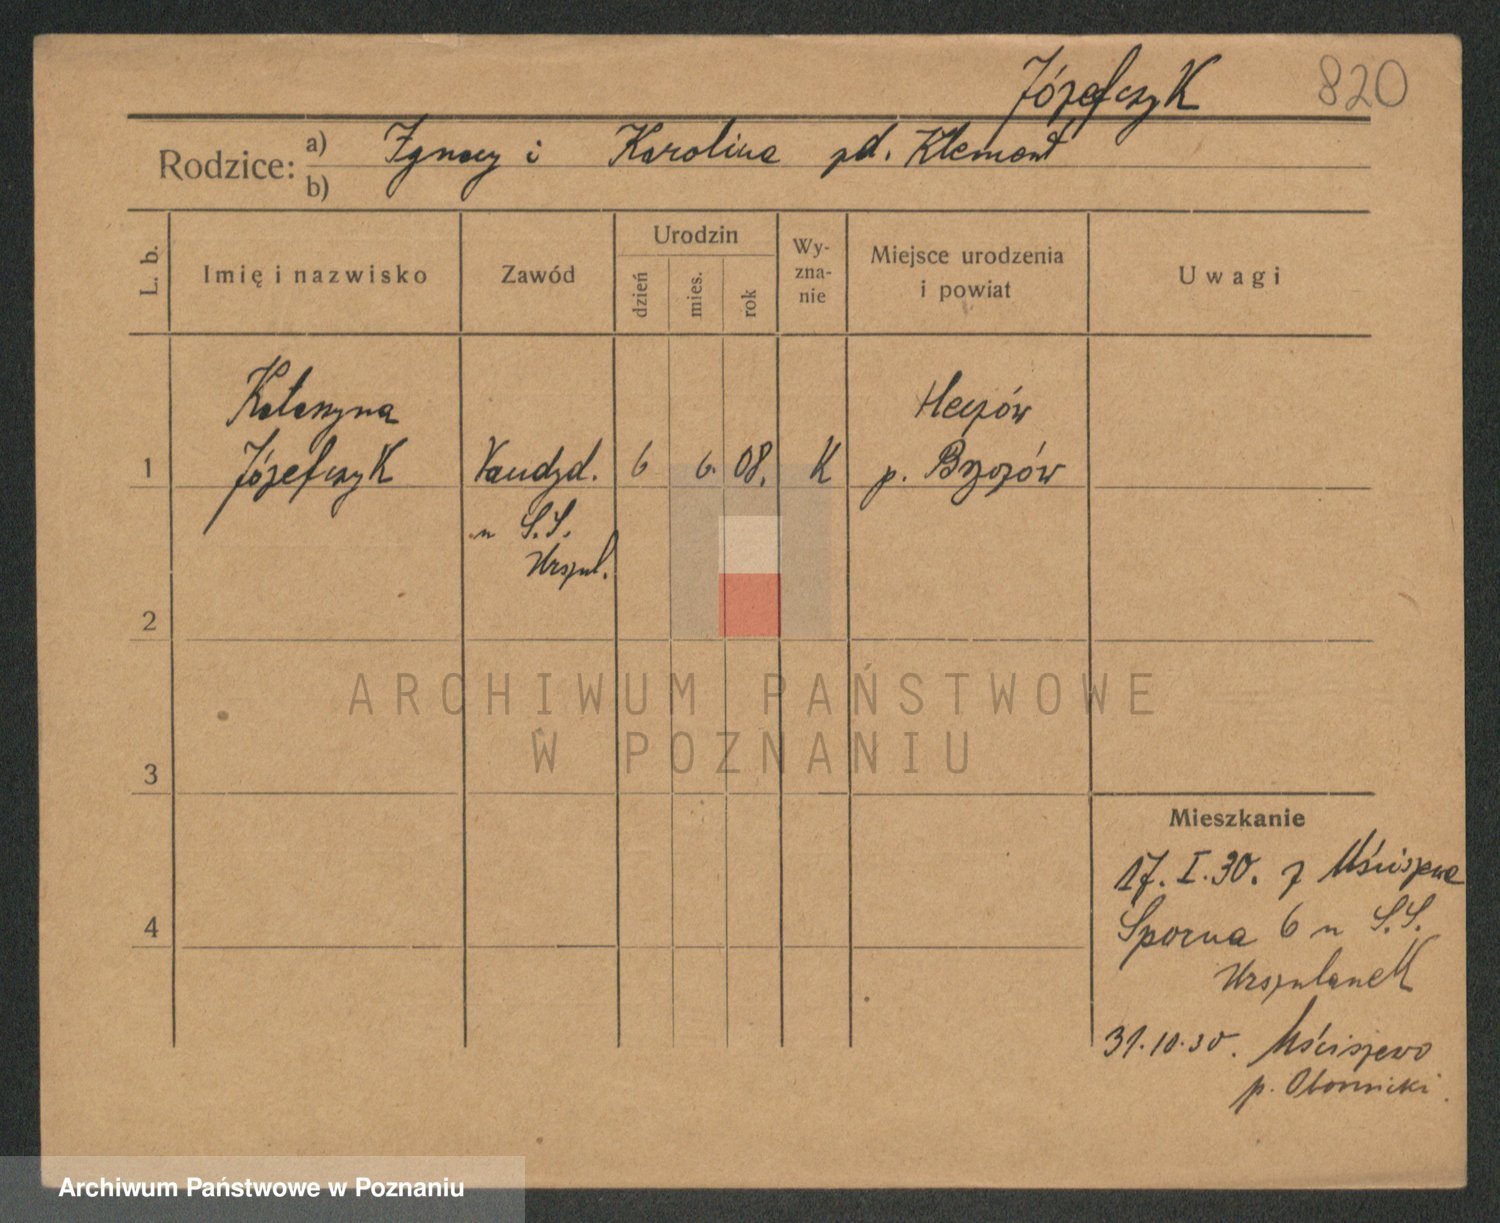 Józefczyk 820
Rodzice: a) Ignacy i Karolina zd. Klemont
b)
L. b. Imię i nazwisko Zawód Urodzin dzień mies. rok Wy-zna-nie Miejsce urodzenia i powiat Uwagi
Katarzyna
1 Józefczyk 6 6. 08. K p. Brzozów
u S.S.
Urszul.
2
ARCHIWUM PAŃSTWOWE
W POZNANIU
3
Mieszkanie
17. I. 30. z Uściszewa
4 Sporna 6 u S.S.
Urszulanek
31.10.30. Uściszewo
p. Obornicki.
Archiwum Państwowe w Poznaniu